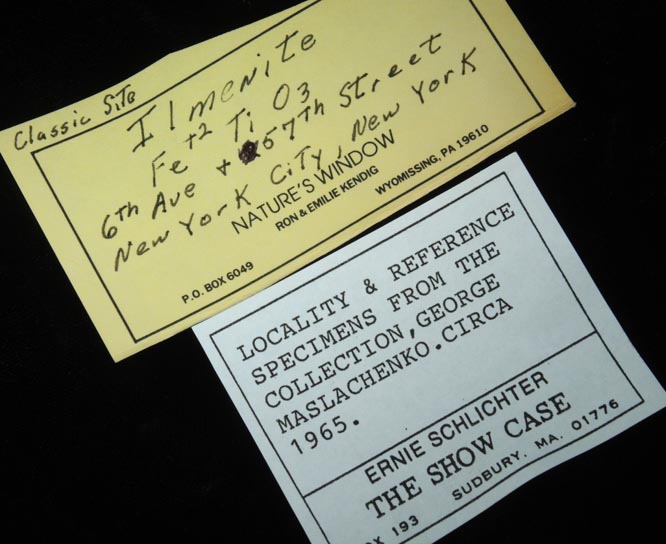 Classic Site
Ilmenite
Fe+2 Ti O3
6th Ave + 57th Street
New York City, New York
NATURE'S WINDOW
RON & EMILIE KENDIG
P.O. BOX 6049
WYOMISSING, PA 19610
LOCALITY & REFERENCE
SPECIMENS FROM THE
COLLECTION,GEORGE
MASLACHENKO.CIRCA
1965.
ERNIE SCHLICHTER
THE SHOW CASE
193 SUDBURY, MA. 01776